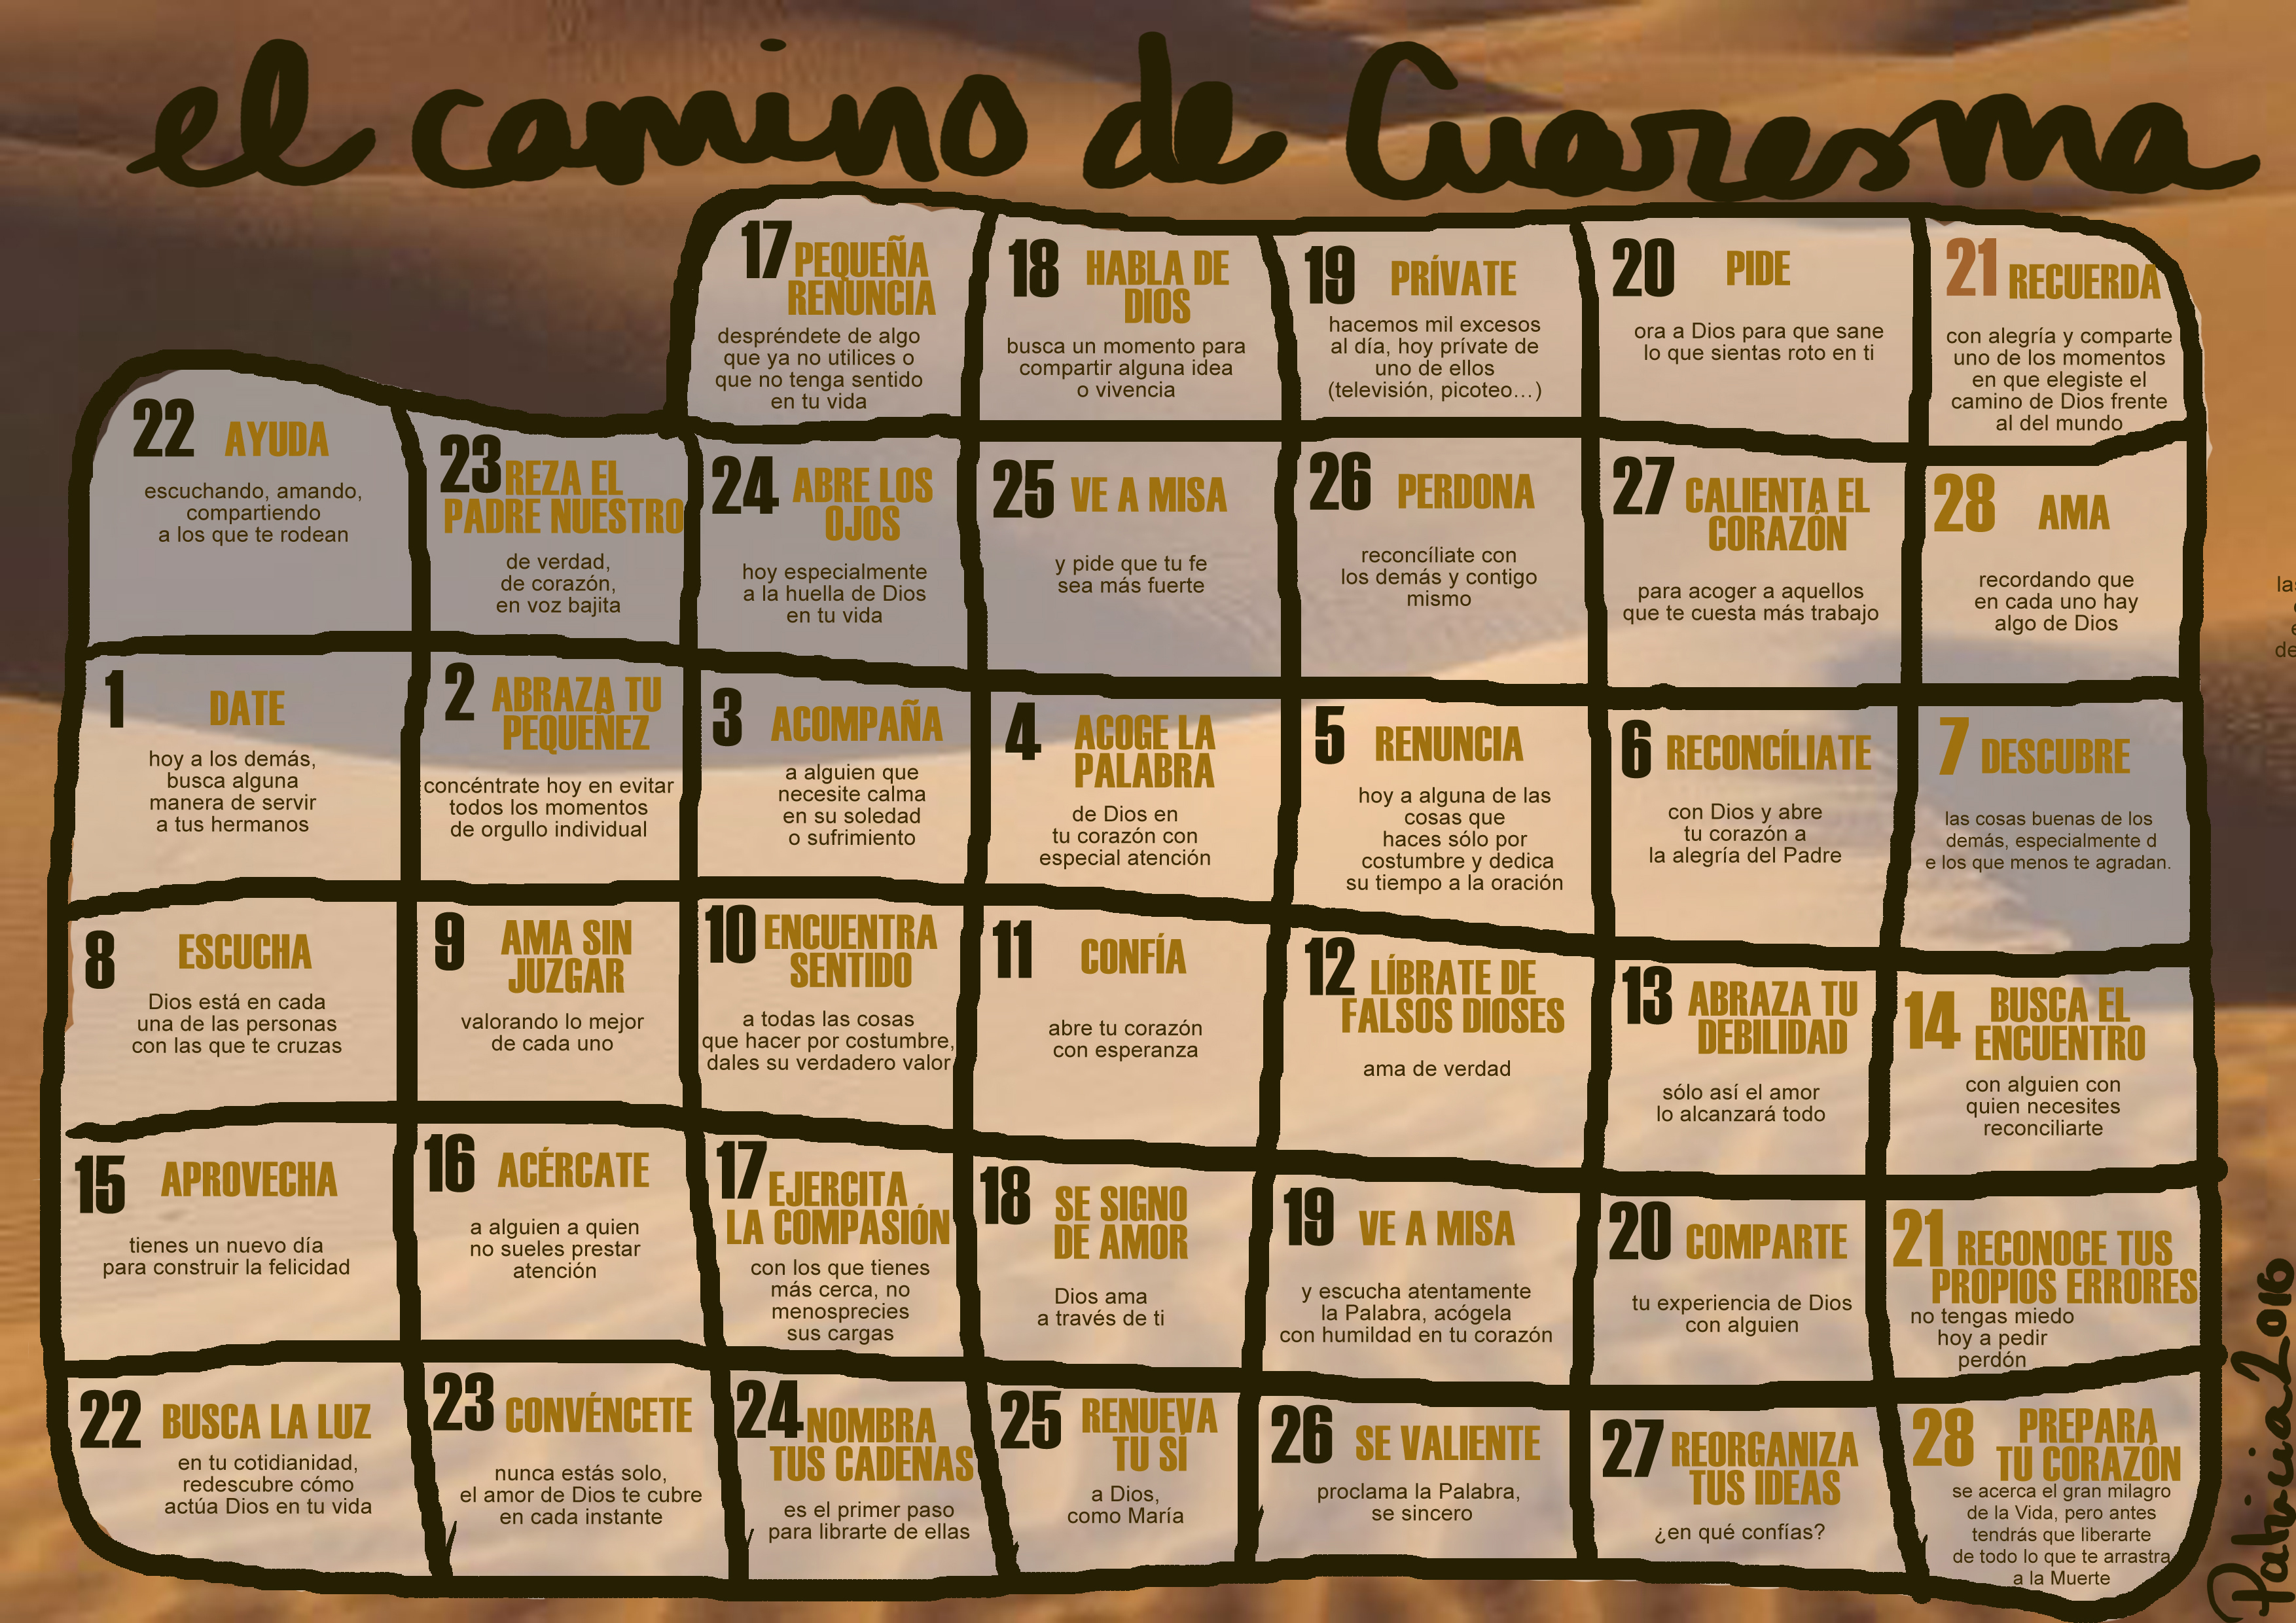 el camino de Cuaresma
17 PEQUEÑA
RENUNCIA
despréndete de algo
que ya no utilices o
que no tenga sentido
en tu vida
18 HABLA DE
DIOS
busca un momento para
compartir alguna idea
o vivencia
19 PRÍVATE
hacemos mil excesos
al día, hoy prívate de
uno de ellos
(televisión, picoteo...)
20 PIDE
ora a Dios para que sane
lo que sientas roto en ti
21 RECUERDA
con alegría y comparte
uno de los momentos
en que elegiste el
camino de Dios frente
al del mundo
22 AYUDA
escuchando, amando,
compartiendo
a los que te rodean
23 REZA EL
PADRE NUESTRO
de verdad,
de corazón,
en voz bajita
24 ABRE LOS
OJOS
hoy especialmente
a la huella de Dios
en tu vida
25 VE A MISA
y pide que tu fe
sea más fuerte
26 PERDONA
reconcíliate con
los demás y contigo
mismo
27 CALIENTA EL
CORAZÓN
para acoger a aquellos
que te cuesta más trabajo
28 AMA
recordando que
en cada uno hay
algo de Dios
1 DATE
hoy a los demás,
busca alguna
manera de servir
a tus hermanos
2 ABRAZA TU
PEQUEÑEZ
concéntrate hoy en evitar
todos los momentos
de orgullo individual
3 ACOMPAÑA
a alguien que
necesite calma
en su soledad
o sufrimiento
4 ACOGE LA
PALABRA
de Dios en
tu corazón con
especial atención
5 RENUNCIA
hoy a alguna de las
cosas que
haces sólo por
costumbre y dedica
su tiempo a la oración
6 RECONCÍLIATE
con Dios y abre
tu corazón a
la alegría del Padre
7 DESCUBRE
las cosas buenas de los
demás, especialmente d
e los que menos te agradan.
8 ESCUCHA
Dios está en cada
una de las personas
con las que te cruzas
9 AMA SIN
JUZGAR
valorando lo mejor
de cada uno
10 ENCUENTRA
SENTIDO
a todas las cosas
que hacer por costumbre,
dales su verdadero valor
11 CONFÍA
abre tu corazón
con esperanza
12 LÍBRATE DE
FALSOS DIOSES
ama de verdad
13 ABRAZA TU
DEBILIDAD
sólo así el amor
lo alcanzará todo
14 BUSCA EL
ENCUENTRO
con alguien con
quien necesites
reconciliarte
15 APROVECHA
tienes un nuevo día
para construir la felicidad
16 ACÉRCATE
a alguien a quien
no sueles prestar
atención
17 EJERCITA
LA COMPASIÓN
con los que tienes
más cerca, no
menosprecies
sus cargas
18 SE SIGNO
DE AMOR
Dios ama
a través de ti
19 VE A MISA
y escucha atentamente
la Palabra, acógela
con humildad en tu corazón
20 COMPARTE
tu experiencia de Dios
con alguien
21 RECONOCE TUS
PROPIOS ERRORES
no tengas miedo
hoy a pedir
perdón
22 BUSCA LA LUZ
en tu cotidianidad,
redescubre cómo
actúa Dios en tu vida
23 CONVÉNCETE
nunca estás solo,
el amor de Dios te cubre
en cada instante
24 NOMBRA
TUS CADENAS
es el primer paso
para librarte de ellas
25 RENUEVA
TU SÍ
a Dios,
como María
26 SE VALIENTE
proclama la Palabra,
se sincero
27 REORGANIZA
TUS IDEAS
¿en qué confías?
28 PREPARA
TU CORAZÓN
se acerca el gran milagro
de la Vida, pero antes
tendrás que liberarte
de todo lo que te arrastra
a la Muerte
Patricia 2016